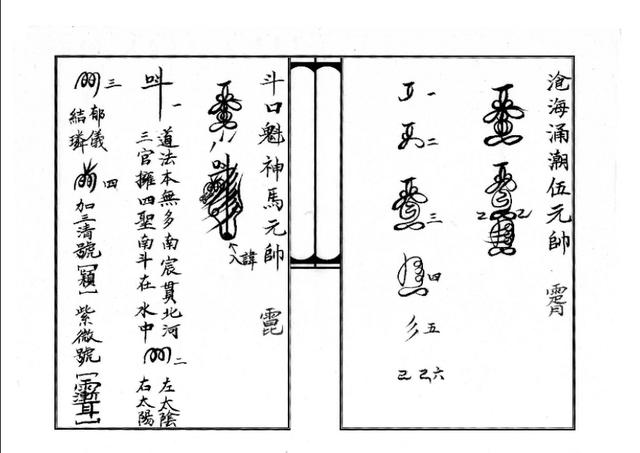 滄海涌潮伍元帥
一
二
三
四
五
己 己 六
斗口魁神馬元帥
諱
入
叫 一
道法本無多南宸貫北河
三官擁四聖南斗在水中
二
左太陰
右太陽
三
郁儀
結璘
四
加三清號
紫微號